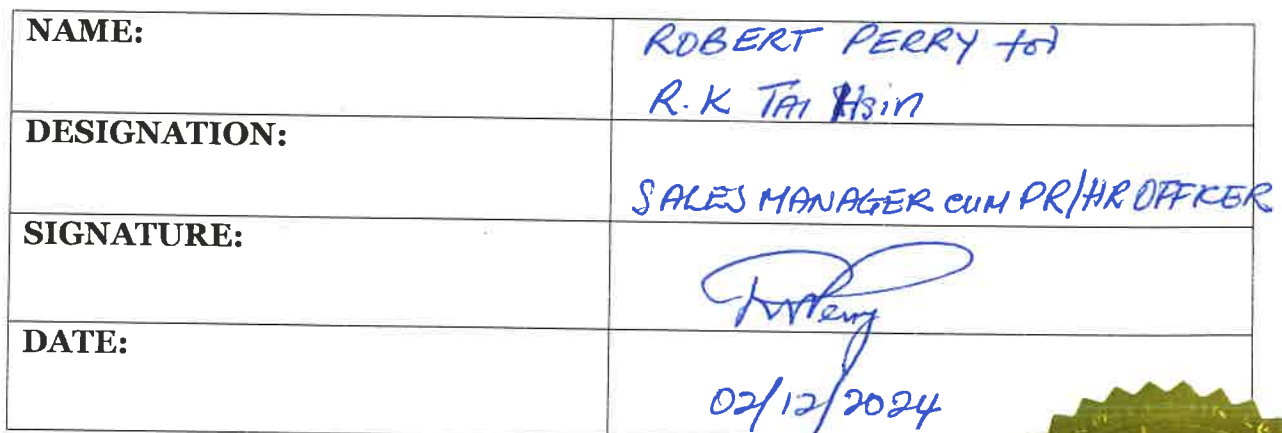 NAME:
ROBERT PERRY for
R.K TAI Hsin
DESIGNATION:
SALES MANAGER CUM PR/HR OFFICER
SIGNATURE:
Perry
DATE:
02/12/2024